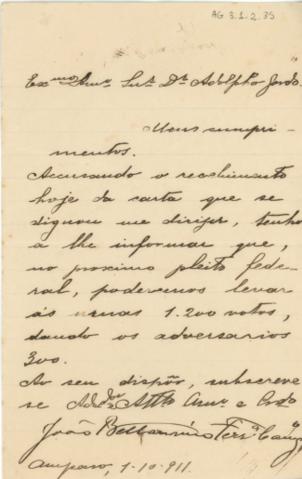 AG 3.1.2.35
Exmo Amo Snr. Dr Adolpho Gordo.
Meus cumpri-
mentos.
Accusando o recebimento
hoje da carta que se
dignou me dirijer, tenho
a lhe informar que,
no proximo pleito fede-
ral, poderemos levar
ás urnas 1.200 votos,
dando os adversarios
300.
Ao seu dispôr, subscreve
se Atto Amo e
João Bellarmino Ferra
Amparo, 1-10-911.